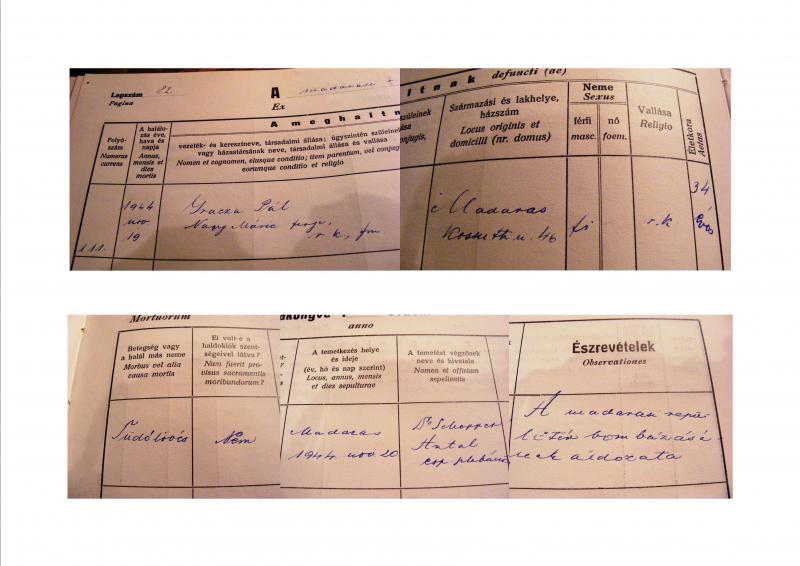 Lapszám 82.
Pagina
A madarasi
Ex
A meghaltn
Folyó-
szám
Numerus
currens
A halálo-
zás éve,
hava és
napja
Annus,
mensis et
dies
mortis
vezeték- és keresztneve, társadalmi állása; úgyszintén szüleinek
vagy házastársának neve, társadalmi állása és vallása
Nomen et cognomen, eiusque conditio; item parentum, vel conjug
eorumque conditio et religio
111.
1944
nov
19
Gracza Pál
Nagy Mária férje,
r. k., fm
ltnak defuncti (ae)
szüleinek
conjugis,
Származási és lakhelye,
házszám
Locus originis et
domicilii (nr. domus)
Neme
Sexus
férfi
masc.
nő
foem.
Vallása
Religio
Életkora
Aetas
Madaras
Kossuth u. 46
fi
r. k.
34
éves
Mortuorum
Betegség vagy
a halál más neme
Morbus vel alia
causa mortis
El volt-e a
haldoklók szent-
ségeivel látva?
Num fuerit pro-
visus sacramentis
moribundorum?
Tüdőlövés
Nem
anno
A temetkezés helye
és ideje
(év, hó és nap szerint)
Locus, annus, mensis
et dies sepulturae
A temetést végzőnek
neve és hivatala
Nomen et officium
sepelientis
Madaras
1944. nov 20
Dr Schopper
Antal
esp plébános
Észrevételek
Observationes
A madarasi repü-
lőtér bombázásá-
nak áldozata